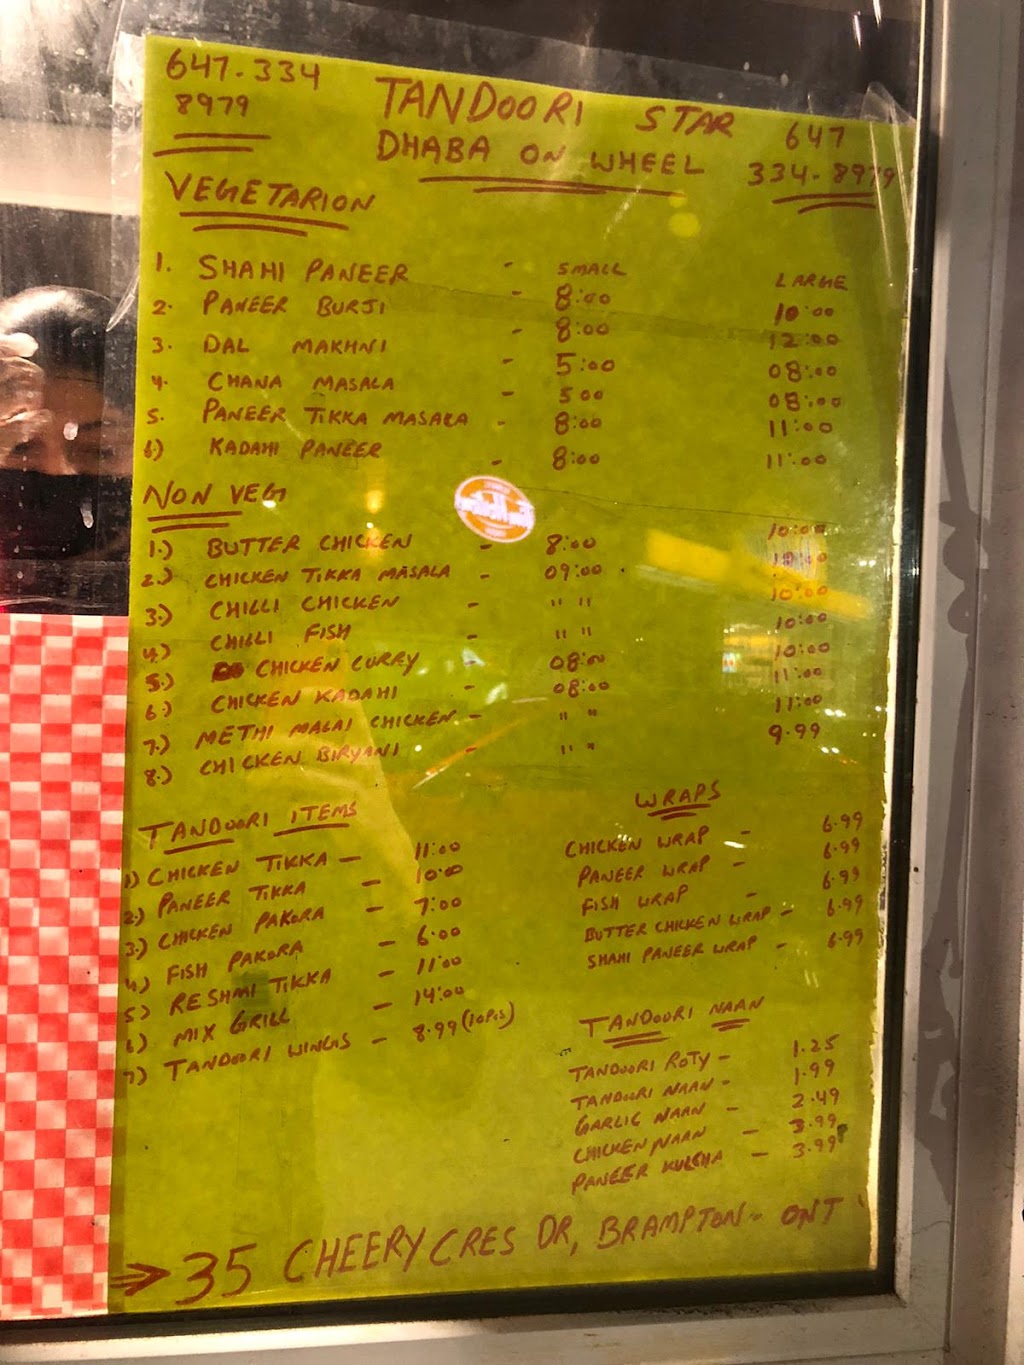 647.334 8979
TANDOORI STAR
DHABA ON WHEEL
647 334-8979
VEGETARION
SMALL LARGE
1. SHAHI PANEER - 8:00 10:00
2. PANEER BURJI - 8:00 12:00
3. DAL MAKHNI - 5:00 08:00
4. CHANA MASALA - 5 00 08:00
5. PANEER TIKKA MASALA - 8:00 11:00
6) KADAHI PANEER - 8:00 11:00
NON VEG
1.) BUTTER CHICKEN - 8:00 10:00
2.) CHICKEN TIKKA MASALA - 09:00 10:00
3.) CHILLI CHICKEN - " " 10:00
4) CHILLI FISH - " " 10:00
5.) CHICKEN CURRY - 08:00 10:00
6.) CHICKEN KADAHI - 08:00 11:00
7.) METHI MALAI CHICKEN - " " 11:00
8.) CHICKEN BIRYANI - " " 9.99
TANDOORI ITEMS
1) CHICKEN TIKKA - 11:00
2.) PANEER TIKKA - 10:00
3.) CHICKEN PAKORA - 7:00
4) FISH PAKORA - 6:00
5) RESHMI TIKKA - 11:00
6) MIX GRILL - 14:00
7) TANDOORI WINGS - 8.99 (10PCS)
WRAPS
CHICKEN WRAP - 6.99
PANEER WRAP - 6.99
FISH WRAP - 6.99
BUTTER CHICKEN WRAP - 6.99
SHAHI PANEER WRAP - 6.99
TANDOORI NAAN
TANDOORI ROTY - 1.25
TANDOORI NAAN - 1.99
GARLIC NAAN - 2.49
CHICKEN NAAN - 3.99
PANEER KULCHA - 3.99
35 CHEERY CRES DR, BRAMPTON - ONT